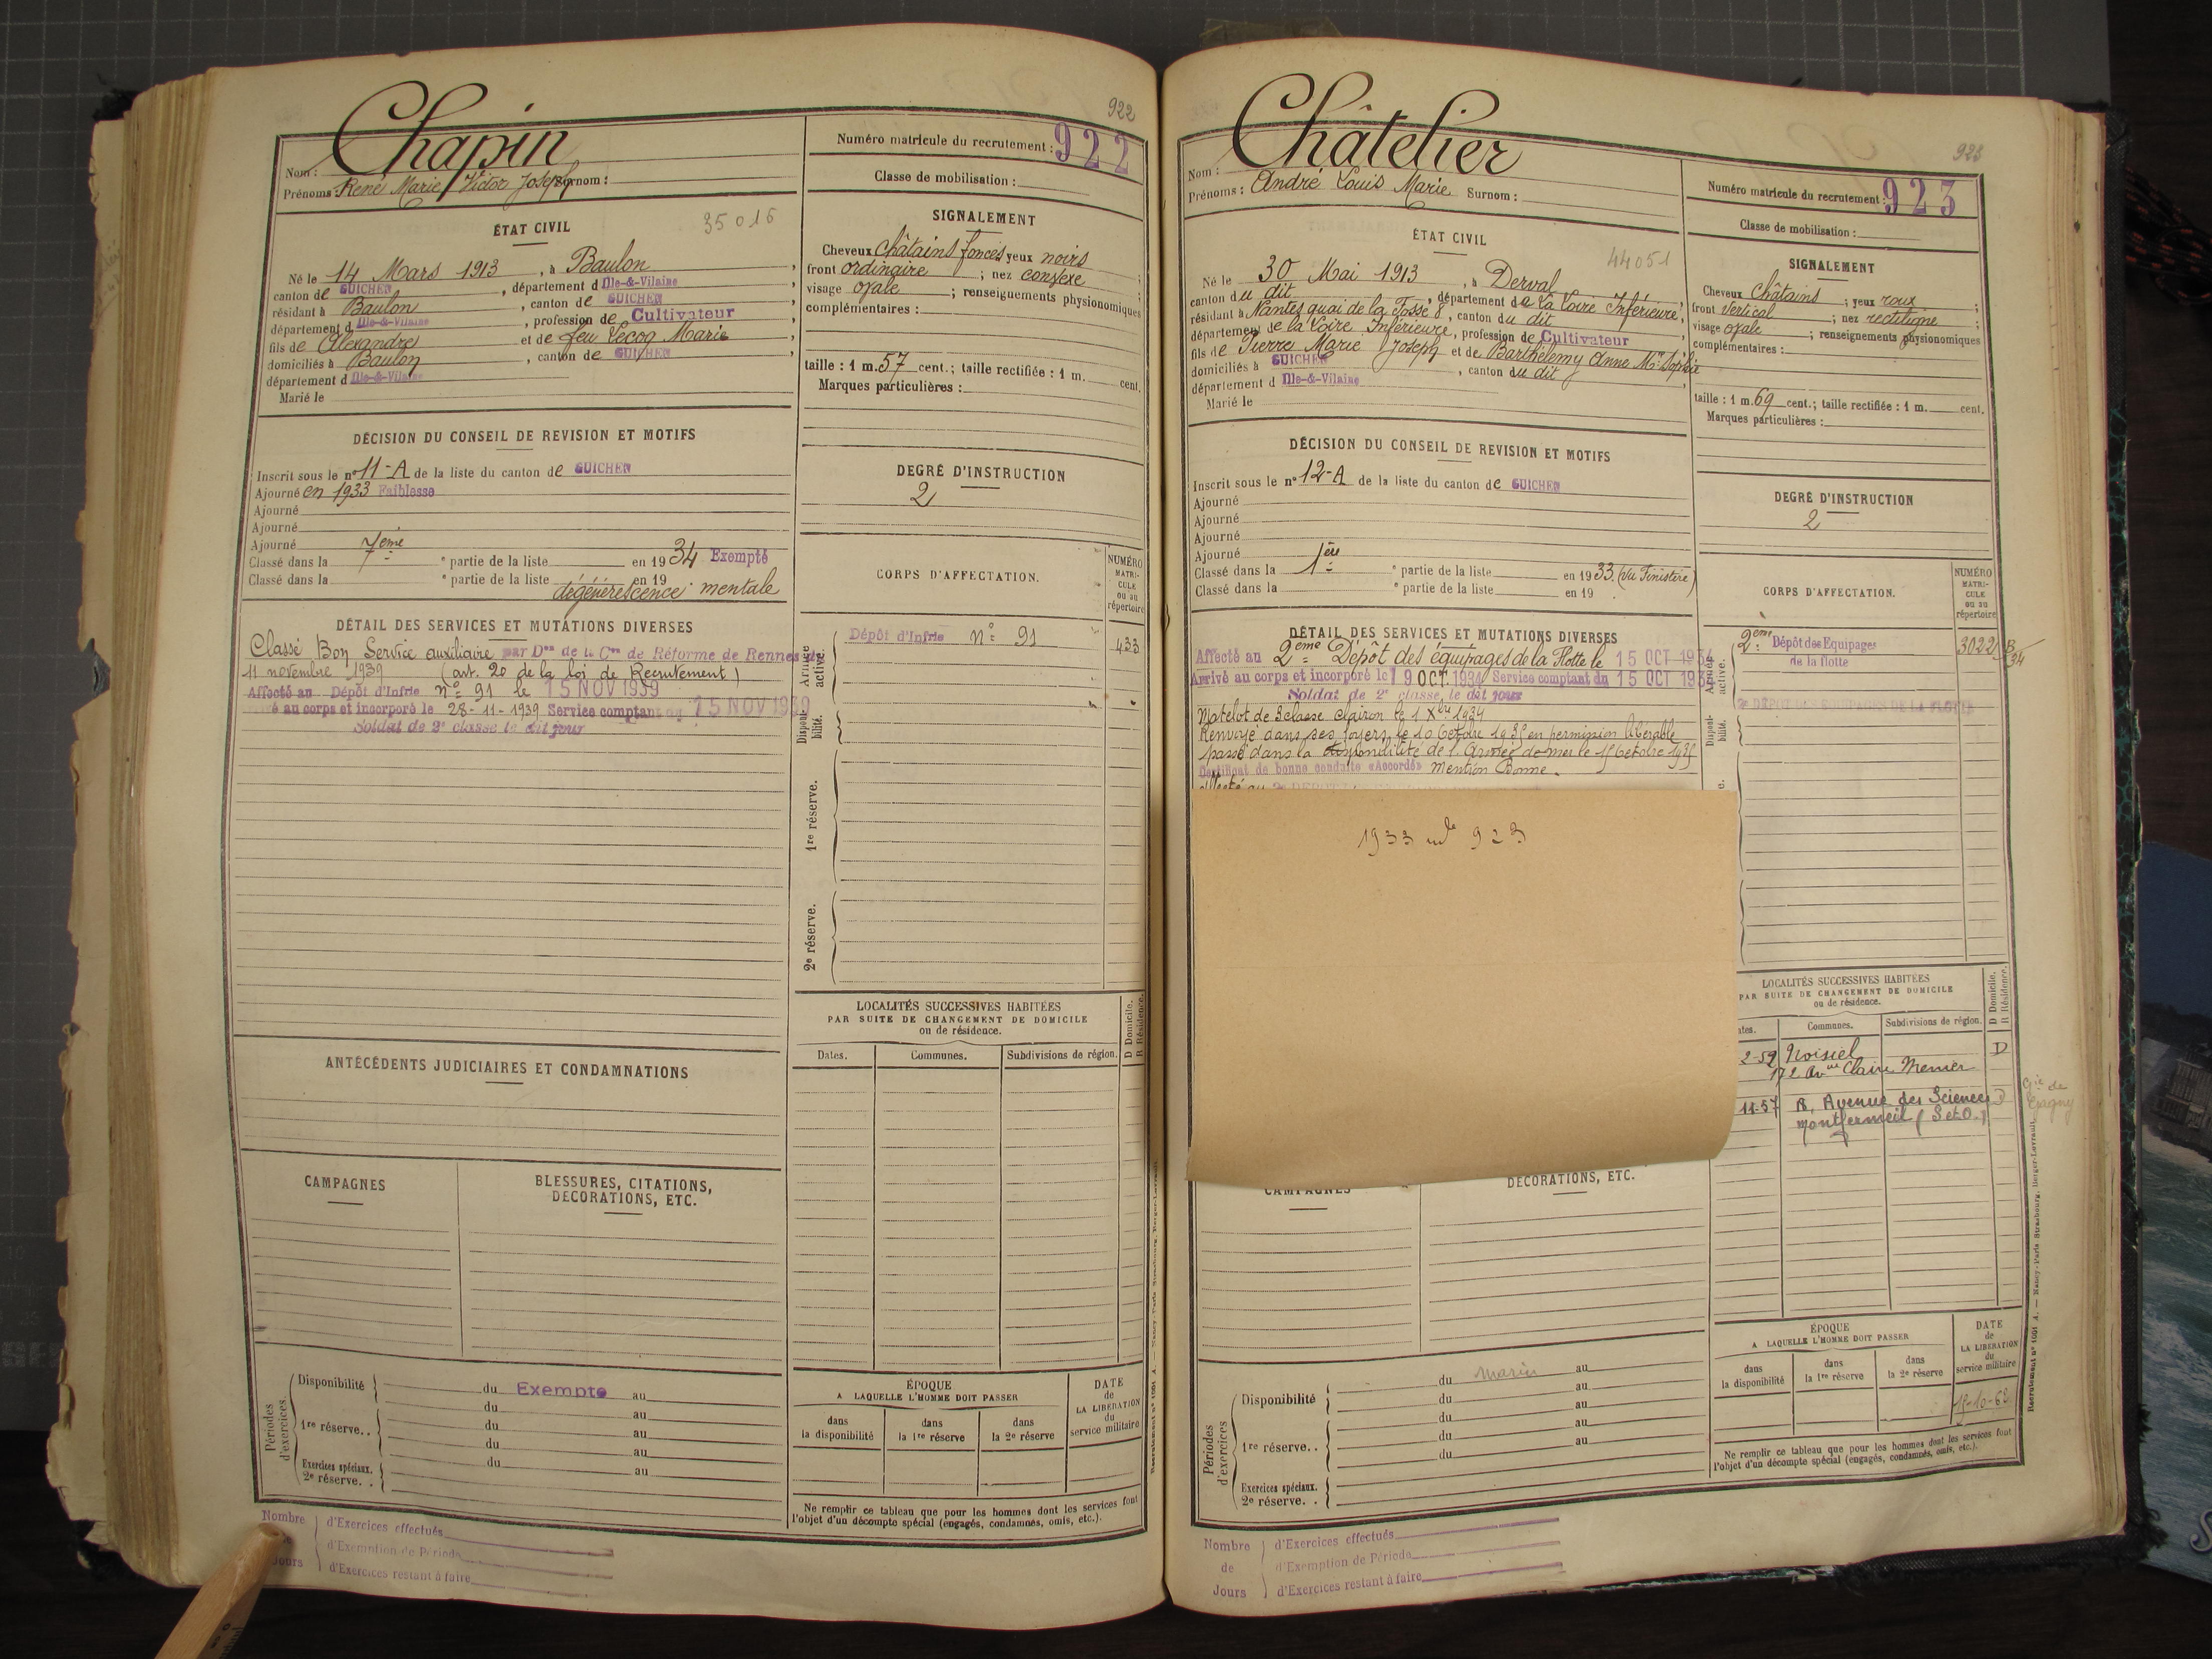 922
Chapin
Nom :
Prénoms : René Marie Victor Joseph Surnom :
Numéro matricule du recrutement : 922
Classe de mobilisation :
ÉTAT CIVIL
35016
Né le 14 Mars 1913, à Baulon,
canton de GUICHEN, département d Ille-&-Vilaine
résidant à Baulon, canton de GUICHEN
département d Ille-&-Vilaine, profession de Cultivateur
fils de Alexandre et de feu Lecoq Marie,
domiciliés à Baulon, canton de GUICHEN
département d Ille-&-Vilaine
Marié le
SIGNALEMENT
Cheveux châtains foncés yeux noirs ;
front ordinaire ; nez convexe ;
visage ovale ; renseignements physionomiques
complémentaires :
taille : 1 m. 57 cent. ; taille rectifiée : 1 m. cent.
Marques particulières :
DÉCISION DU CONSEIL DE REVISION ET MOTIFS
Inscrit sous le n° 11-A de la liste du canton de GUICHEN
Ajourné en 1933 Faiblesse
Ajourné
Ajourné
Ajourné
Classé dans la 7ème e partie de la liste en 1934 Exempté
Classé dans la e partie de la liste en 19
dégénérescence mentale
DEGRÉ D'INSTRUCTION
2
DÉTAIL DES SERVICES ET MUTATIONS DIVERSES
Classé Bon Service auxiliaire par Don de la Con de Réforme de Rennes du
11 novembre 1939 (art. 20 de la loi de Recrutement)
Affecté au Dépôt d'Infrie n° 91 le 15 NOV 1939
é au corps et incorporé le 28-11-1939 Service comptant du 15 NOV 1939
Soldat de 2e classe le dit jour
CORPS D'AFFECTATION.
NUMÉRO
MATRI-
CULE
ou au
répertoire
Armée active.
Dépôt d'Infrie n° 91 433
Disponi-
bilité.
1re réserve.
2e réserve.
LOCALITÉS SUCCESSIVES HABITÉES
PAR SUITE DE CHANGEMENT DE DOMICILE
ou de résidence.
D Domicile.
R Résidence.
Dates. Communes. Subdivisions de région.
ANTÉCÉDENTS JUDICIAIRES ET CONDAMNATIONS
CAMPAGNES
BLESSURES, CITATIONS,
DÉCORATIONS, ETC.
Périodes
d'exercices.
Disponibilité du Exempté au
du au
1re réserve.. du au
du au
Exercices spéciaux. du au
2e réserve. .
ÉPOQUE
A LAQUELLE L'HOMME DOIT PASSER
dans
la disponibilité
dans
la 1re réserve
dans
la 2e réserve
DATE
de
LA LIBÉRATION
du
service militaire
Ne remplir ce tableau que pour les hommes dont les services font
l'objet d'un décompte spécial (engagés, condamnés, omis, etc.).
Nombre
de
Jours
d'Exercices effectués
d'Exemption de Période
d'Exercices restant à faire
923
Châtelier
Nom :
Prénoms : André Louis Marie Surnom :
Numéro matricule du recrutement : 923
Classe de mobilisation :
ÉTAT CIVIL
44051
Né le 30 Mai 1913, à Derval,
canton du dit, département de La Loire Inférieure,
résidant à Nantes quai de la Fosse 8, canton du dit
département de la Loire Inférieure, profession de Cultivateur
fils de Pierre Marie Joseph et de Barthélemy Anne Mie Sophie
domiciliés à GUICHEN, canton du dit
département d Ille-&-Vilaine
Marié le
SIGNALEMENT
Cheveux Châtains ; yeux roux ;
front vertical ; nez rectiligne ;
visage ovale ; renseignements physionomiques
complémentaires :
taille : 1 m. 69 cent. ; taille rectifiée : 1 m. cent.
Marques particulières :
DÉCISION DU CONSEIL DE REVISION ET MOTIFS
Inscrit sous le n° 12-A de la liste du canton de GUICHEN
Ajourné
Ajourné
Ajourné
Ajourné
Classé dans la 1ère e partie de la liste en 1933 (Vu Finistère)
Classé dans la e partie de la liste en 19
DEGRÉ D'INSTRUCTION
2
DÉTAIL DES SERVICES ET MUTATIONS DIVERSES
Affecté au 2ème Dépôt des équipages de la Flotte le 15 OCT 1934
Arrivé au corps et incorporé le 19 OCT 1934 Service comptant du 15 OCT 1934
Soldat de 2e classe, le dit jour
Matelot de 3 classe Clairon le 1 Xbre 1934
Renvoyé dans ses foyers le 10 Octobre 1935 en permission libérable
passé dans la disponibilité de l'Armée de mer le 15 Octobre 1935
Certificat de bonne conduite «Accordé» mention Bonne.
1933 mle 923
CORPS D'AFFECTATION.
NUMÉRO
MATRI-
CULE
ou au
répertoire
Armée active.
2ème Dépôt des Equipages 3022 B/34
de la flotte
2e DÉPOT DES ÉQUIPAGES DE LA FLOTTE
Disponi-
bilité.
LOCALITÉS SUCCESSIVES HABITÉES
PAR SUITE DE CHANGEMENT DE DOMICILE
ou de résidence.
D Domicile.
R Résidence.
ates. Communes. Subdivisions de région.
2-52 Noisiel D
172 Avue Claire Menier
11-57 8, Avenue des Sciences D
Montfermeil (S et O.)
Gie de
CAMPAGNES
DÉCORATIONS, ETC.
Périodes
d'exercices
Disponibilité du Marin au
du au
du au
1re réserve.. du au
du au
Exercices spéciaux.
2e réserve. .
ÉPOQUE
A LAQUELLE L'HOMME DOIT PASSER
dans
la disponibilité
dans
la 1re réserve
dans
la 2e réserve
DATE
de
LA LIBÉRATION
du
service militaire
15-10-62
Ne remplir ce tableau que pour les hommes dont les services font
l'objet d'un décompte spécial (engagés, condamnés, omis, etc.).
Recrutement n° 1001 A. — Nancy-Paris-Strasbourg, Berger-Levrault.
Nombre
de
Jours
d'Exercices effectués
d'Exemption de Période
d'Exercices restant à faire